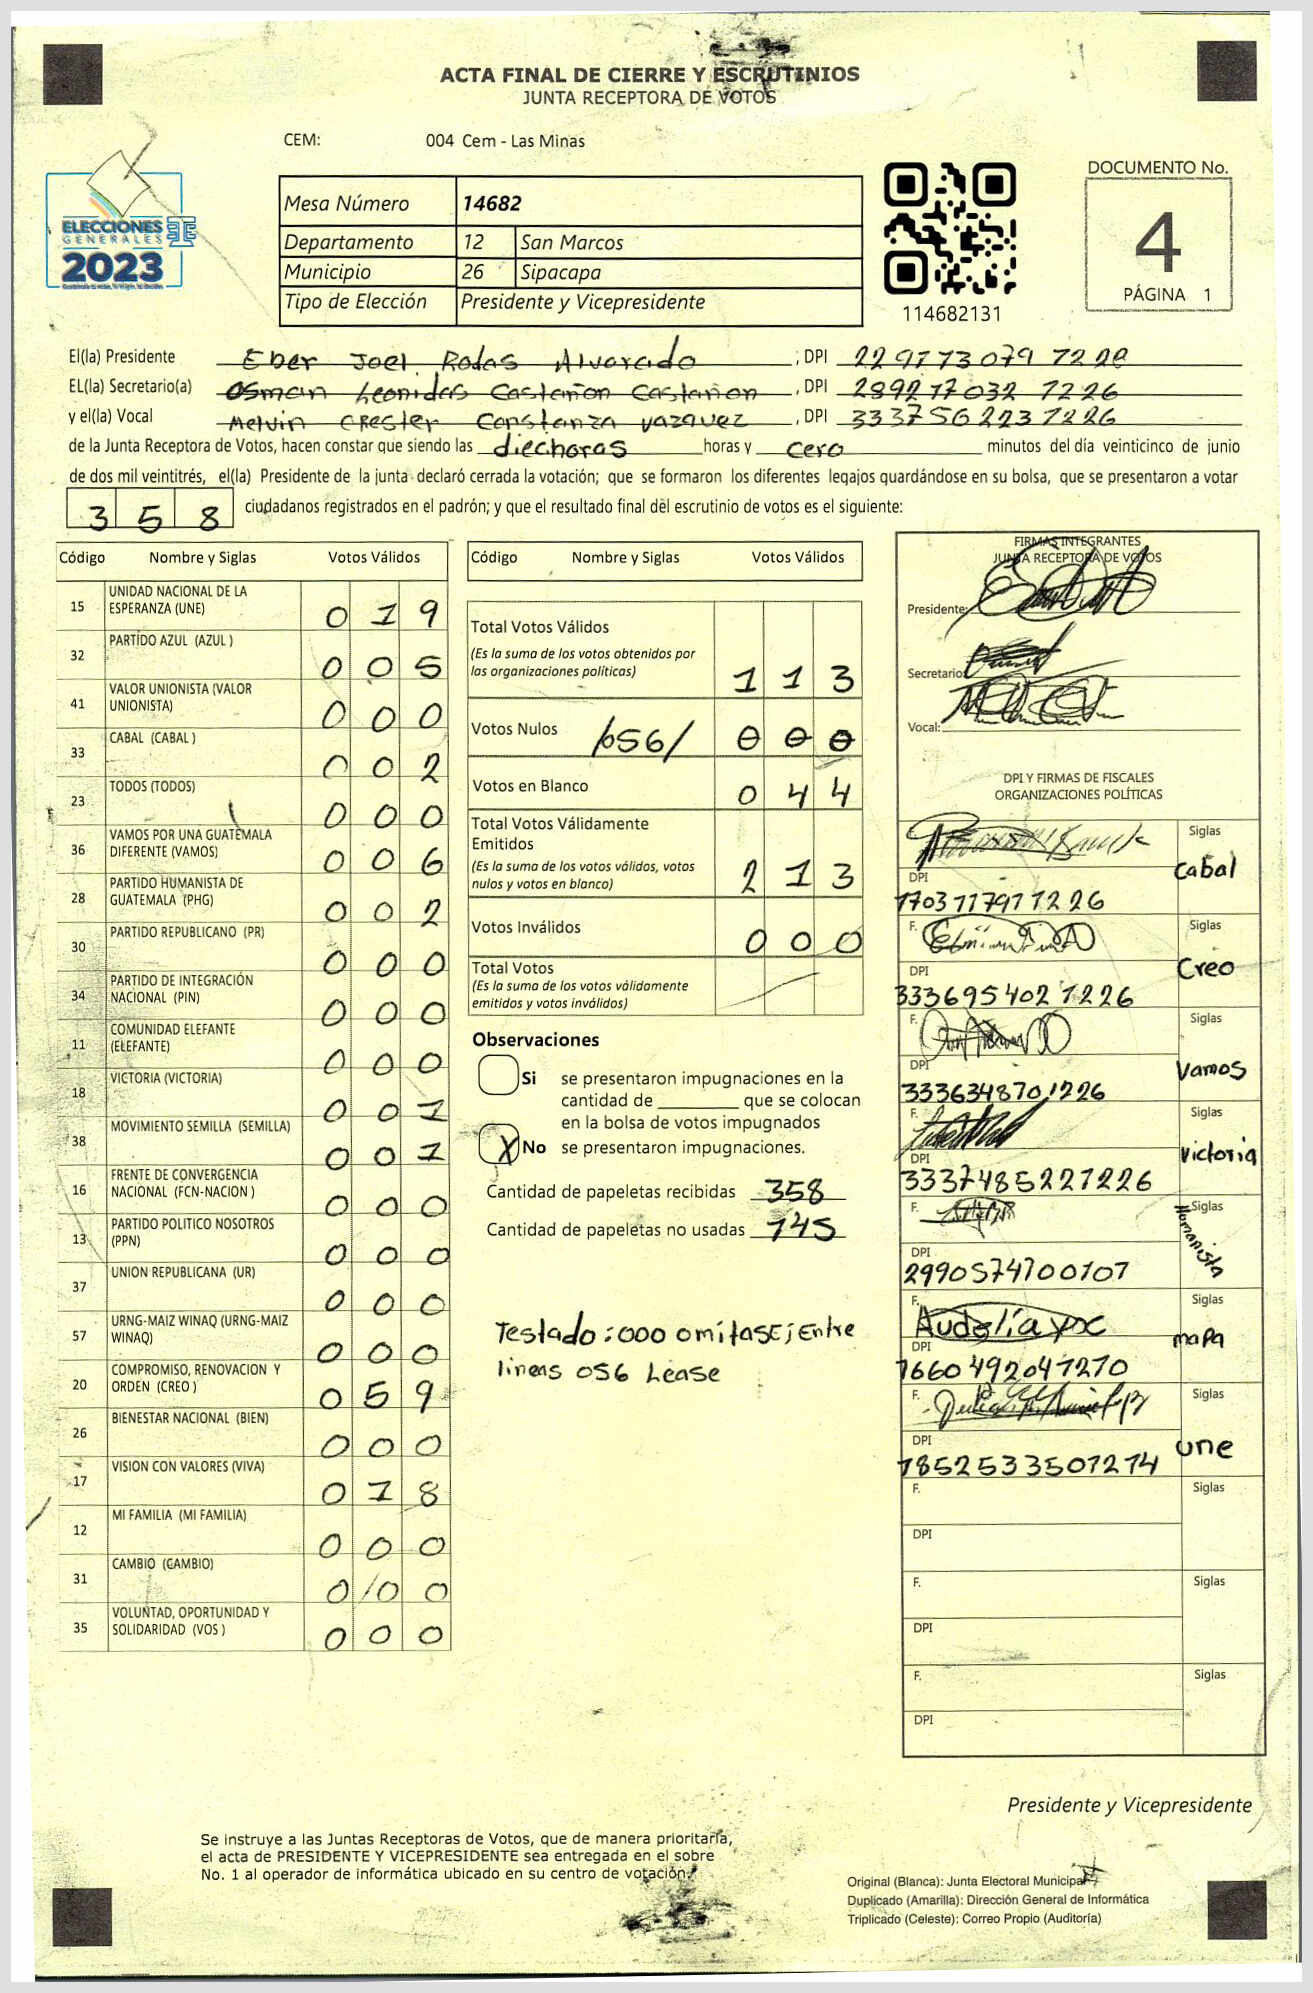 ACTA FINAL DE CIERRE Y ESCRUTINIOS
JUNTA RECEPTORA DE VOTOS
CEM: 004 Cem - Las Minas
ELECCIONES
GENERALES
2023
Mesa Número 14682
Departamento 12 San Marcos
Municipio 26 Sipacapa
Tipo de Elección Presidente y Vicepresidente
114682131
DOCUMENTO No.
4
PÁGINA 1
El(la) Presidente Eber Joel Rodas Alvarado, DPI 229773079 1228
EL(la) Secretario(a) Osman Leonidas Castañon Castañon, DPI 289217032 1226
y el(la) Vocal Melvin Crester Constanza Vazquez, DPI 333756223 1226
de la Junta Receptora de Votos, hacen constar que siendo las diechoras horas y cero minutos del día veinticinco de junio
de dos mil veintitrés, el(la) Presidente de la junta declaró cerrada la votación; que se formaron los diferentes legajos quardándose en su bolsa, que se presentaron a votar
358 ciudadanos registrados en el padrón; y que el resultado final del escrutinio de votos es el siguiente:
Código Nombre y Siglas Votos Válidos
15 UNIDAD NACIONAL DE LA ESPERANZA (UNE) 019
32 PARTIDO AZUL (AZUL ) 005
41 VALOR UNIONISTA (VALOR UNIONISTA) 000
33 CABAL (CABAL ) 002
23 TODOS (TODOS) 000
36 VAMOS POR UNA GUATEMALA DIFERENTE (VAMOS) 006
28 PARTIDO HUMANISTA DE GUATEMALA (PHG) 002
30 PARTIDO REPUBLICANO (PR) 000
34 PARTIDO DE INTEGRACIÓN NACIONAL (PIN) 000
11 COMUNIDAD ELEFANTE (ELEFANTE) 000
18 VICTORIA (VICTORIA) 001
38 MOVIMIENTO SEMILLA (SEMILLA) 001
16 FRENTE DE CONVERGENCIA NACIONAL (FCN-NACION ) 000
13 PARTIDO POLITICO NOSOTROS (PPN) 000
37 UNION REPUBLICANA (UR) 000
57 URNG-MAIZ WINAQ (URNG-MAIZ WINAQ) 000
20 COMPROMISO, RENOVACION Y ORDEN (CREO ) 059
26 BIENESTAR NACIONAL (BIEN) 000
17 VISION CON VALORES (VIVA) 018
12 MI FAMILIA (MI FAMILIA) 000
31 CAMBIO (CAMBIO) 000
35 VOLUNTAD, OPORTUNIDAD Y SOLIDARIDAD (VOS ) 000
Código Nombre y Siglas Votos Válidos
Total Votos Válidos
(Es la suma de los votos obtenidos por
las organizaciones políticas) 113
Votos Nulos /056/ 000
Votos en Blanco 044
Total Votos Válidamente
Emitidos
(Es la suma de los votos válidos, votos
nulos y votos en blanco) 213
Votos Inválidos 000
Total Votos
(Es la suma de los votos válidamente
emitidos y votos inválidos)
Observaciones
Si se presentaron impugnaciones en la
cantidad de ________ que se colocan
en la bolsa de votos impugnados
X No se presentaron impugnaciones.
Cantidad de papeletas recibidas 358
Cantidad de papeletas no usadas 145
Testado: 000 omitase; Entre
lineas 056 Lease
FIRMAS INTEGRANTES
JUNTA RECEPTORA DE VOTOS
Presidente:
Secretario:
Vocal:
DPI Y FIRMAS DE FISCALES
ORGANIZACIONES POLÍTICAS
Siglas Cabal
DPI 1703117971226
F. Siglas Creo
DPI 3336954021226
F. Siglas Vamos
DPI 3336348701226
F. Siglas victoria
DPI 3337485221226
F. Siglas Humanista
DPI 2990574700101
F. Audelia yoc Siglas mapa
DPI 1660492041210
F. Siglas une
DPI 1852533501214
F. Siglas
DPI
F. Siglas
DPI
F. Siglas
DPI
Presidente y Vicepresidente
Se instruye a las Juntas Receptoras de Votos, que de manera prioritaria,
el acta de PRESIDENTE Y VICEPRESIDENTE sea entregada en el sobre
No. 1 al operador de informática ubicado en su centro de votación.
Original (Blanca): Junta Electoral Municipal
Duplicado (Amarilla): Dirección General de Informática
Triplicado (Celeste): Correo Propio (Auditoría)